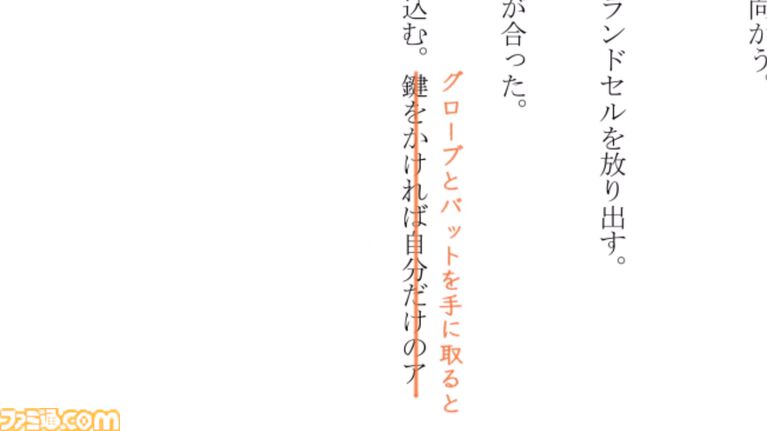 向かう。
ランドセルを放り出す。
が合った。
グローブとバットを手に取ると
込む。鍵をかければ自分だけのア
ファミ通.com